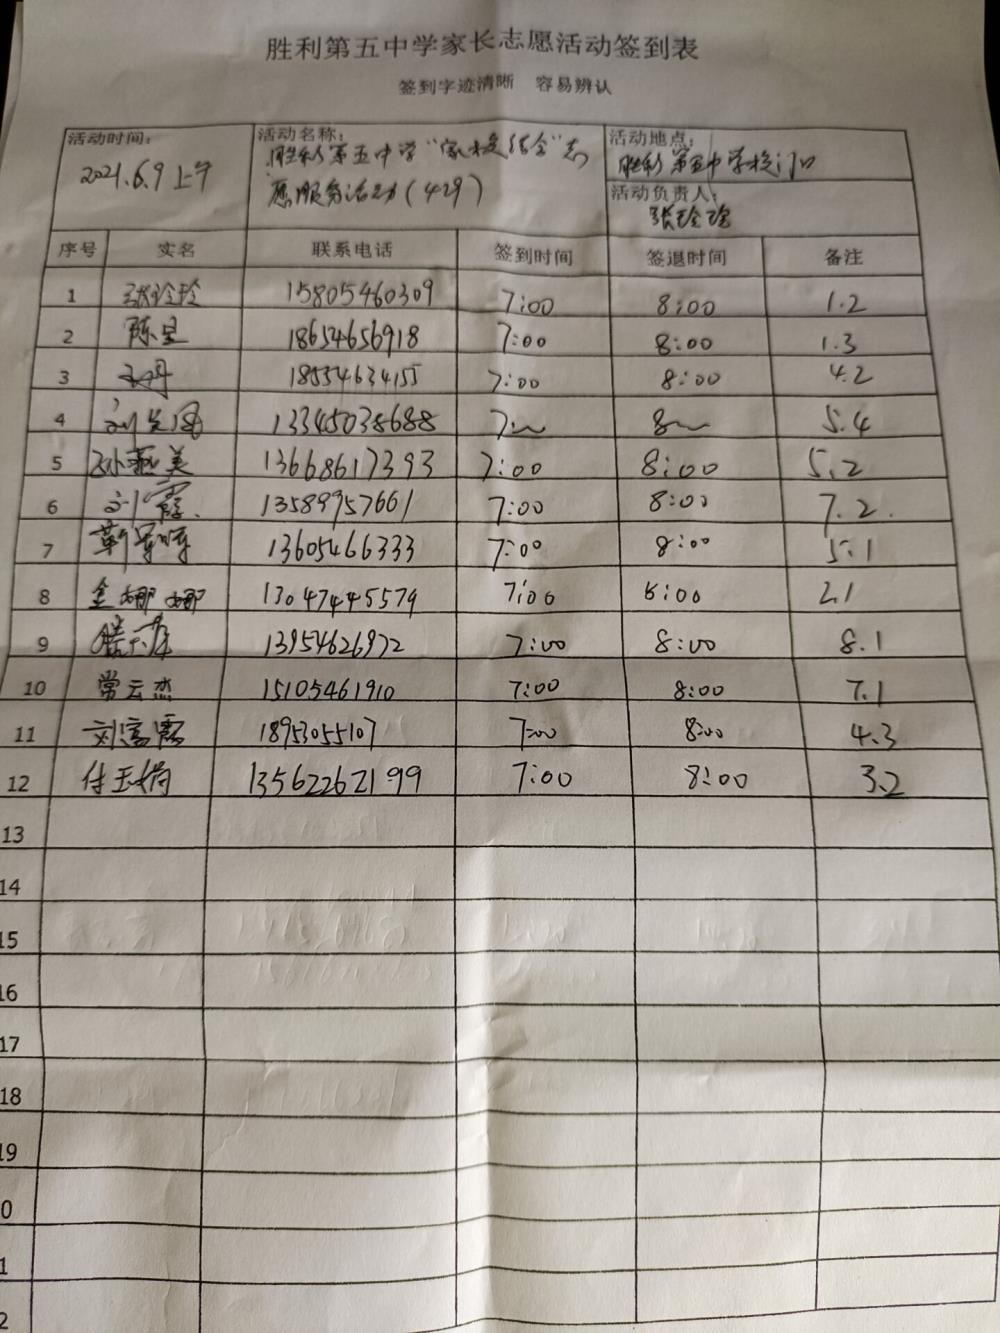 胜利第五中学家长志愿活动签到表
签到字迹清晰 容易辨认
活动时间:
2021.6.9上午
活动名称:
胜利第五中学“家校结合”志
愿服务活动(429)
活动地点:
胜利第五中学校门口
活动负责人:
张玲玲
序号 实名 联系电话 签到时间 签退时间 备注
1 张玲玲 15805460309 7:00 8:00 1.2
2 陈呈 18654656918 7:00 8:00 1.3
3 18554634155 7:00 8:00 4.2
4 13345038688 5.4
5 孙燕美 13668617393 7:00 8:00 5.2
6 刘霞. 13589957661 7:00 8:00 7.2.
7 靳 13605466333 7:00 8:00 5.1
8 金娜娜 13047445579 7:00 8:00 2.1
9 13954626972 7:00 8:00 8.1
10 常云杰 15105461910 7:00 8:00 7.1
11 刘富霞 18953055107 7:00 8:00 4.3
12 付玉娟 13562262199 7:00 8:00 3.2
13
14
15
16
17
18
19
0
1
2